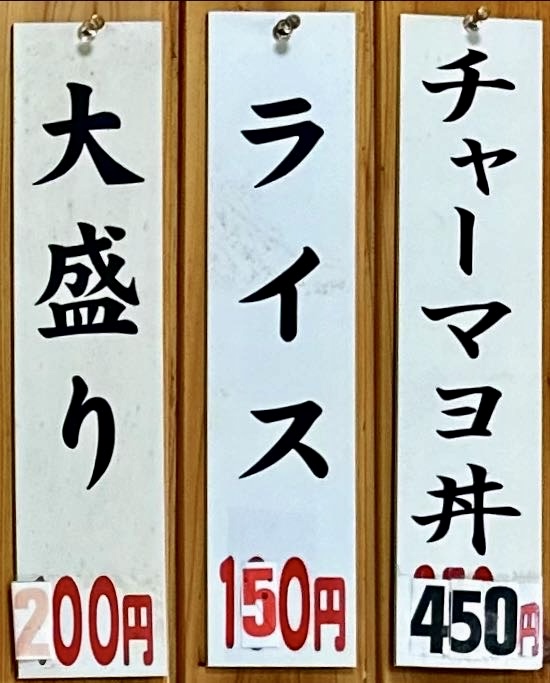 チャーマヨ丼
450円
ライス
150円
大盛り
200円